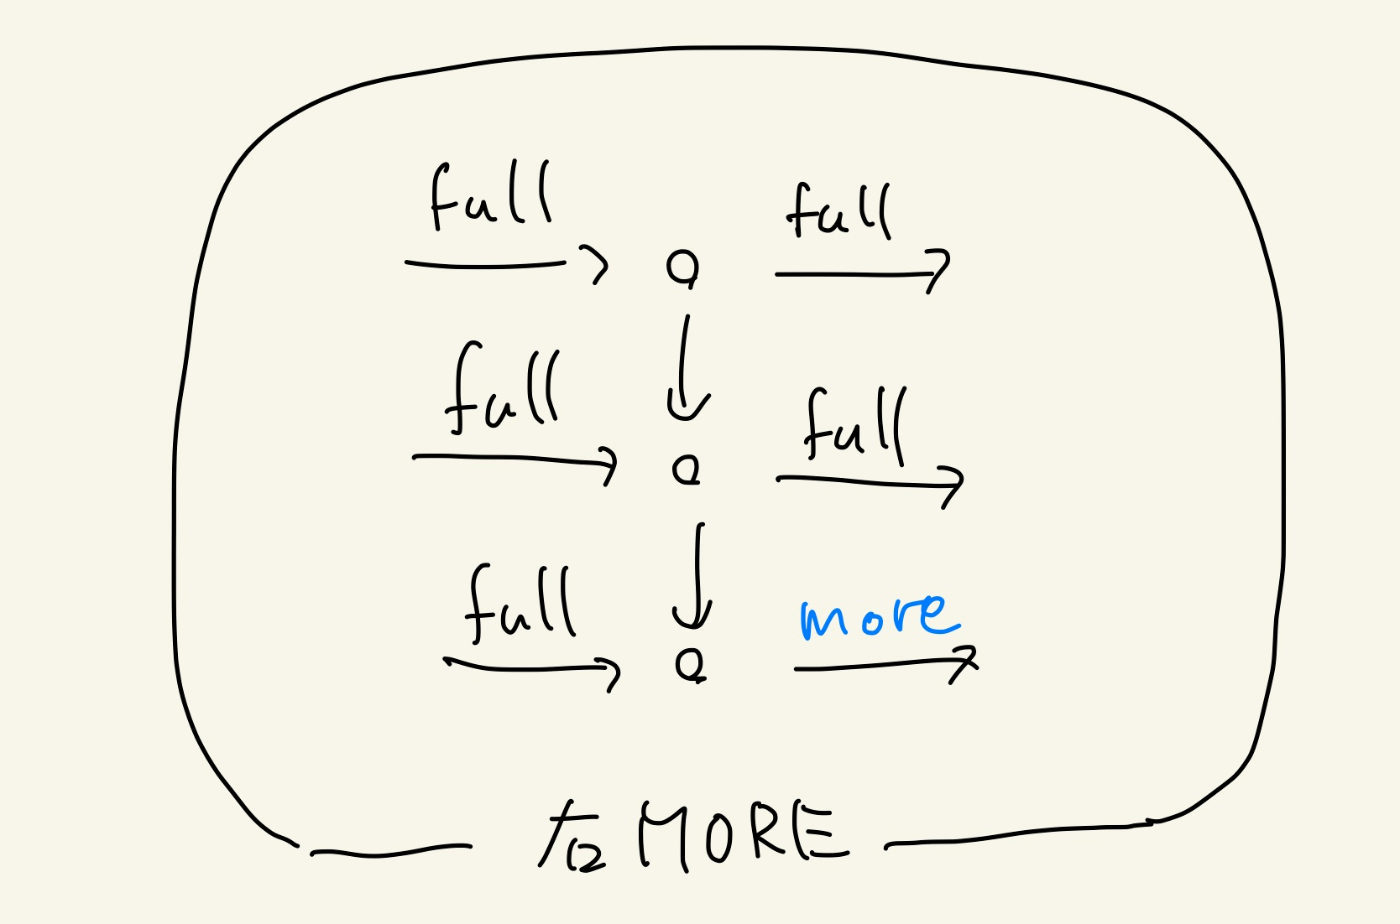 full full
full full
full more
右 MORE